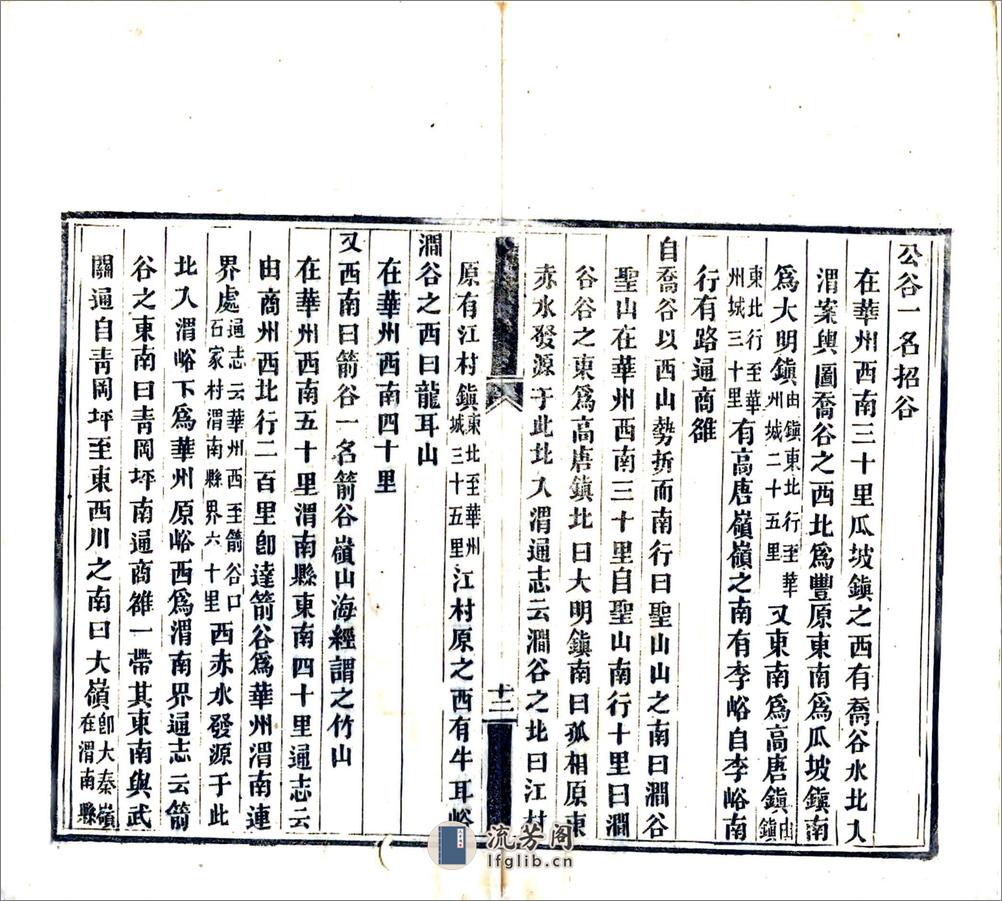 公谷一名招谷
在華州西南三十里瓜坡鎮之西有喬谷水北入
渭案輿圖喬谷之西北爲豐原東南爲瓜坡鎮南
爲大明鎮由鎮東北行至華州城二十五里又東南爲高唐鎮由鎮
東北行至華州城三十里有高唐嶺嶺之南有李峪自李峪南
行有路通商雒
自喬谷以西山勢折而南行曰聖山山之南曰澗谷
聖山在華州西南三十里自聖山南行十里曰澗
谷谷之東爲高唐鎮北曰大明鎮南曰孤相原東
赤水發源于此北入渭通志云澗谷之北曰江村
原有江村鎮東北至華州城三十五里江村原之西有牛耳峪
澗谷之西曰龍耳山
在華州西南四十里
又西南曰箭谷一名箭谷嶺山海經謂之竹山
在華州西南五十里渭南縣東南四十里通志云
由商州西北行二百里卽達箭谷爲華州渭南連
界處通志云華州西至箭谷口石家村渭南縣界六十里西赤水發源于此
北入渭峪下爲華州原峪西爲渭南界通志云箭
谷之東南曰青岡坪南通商雒一帶其東南與武
關通自青岡坪至東西川之南曰大嶺卽大秦嶺在渭南縣
十二
流芳阁
lfglib.cn